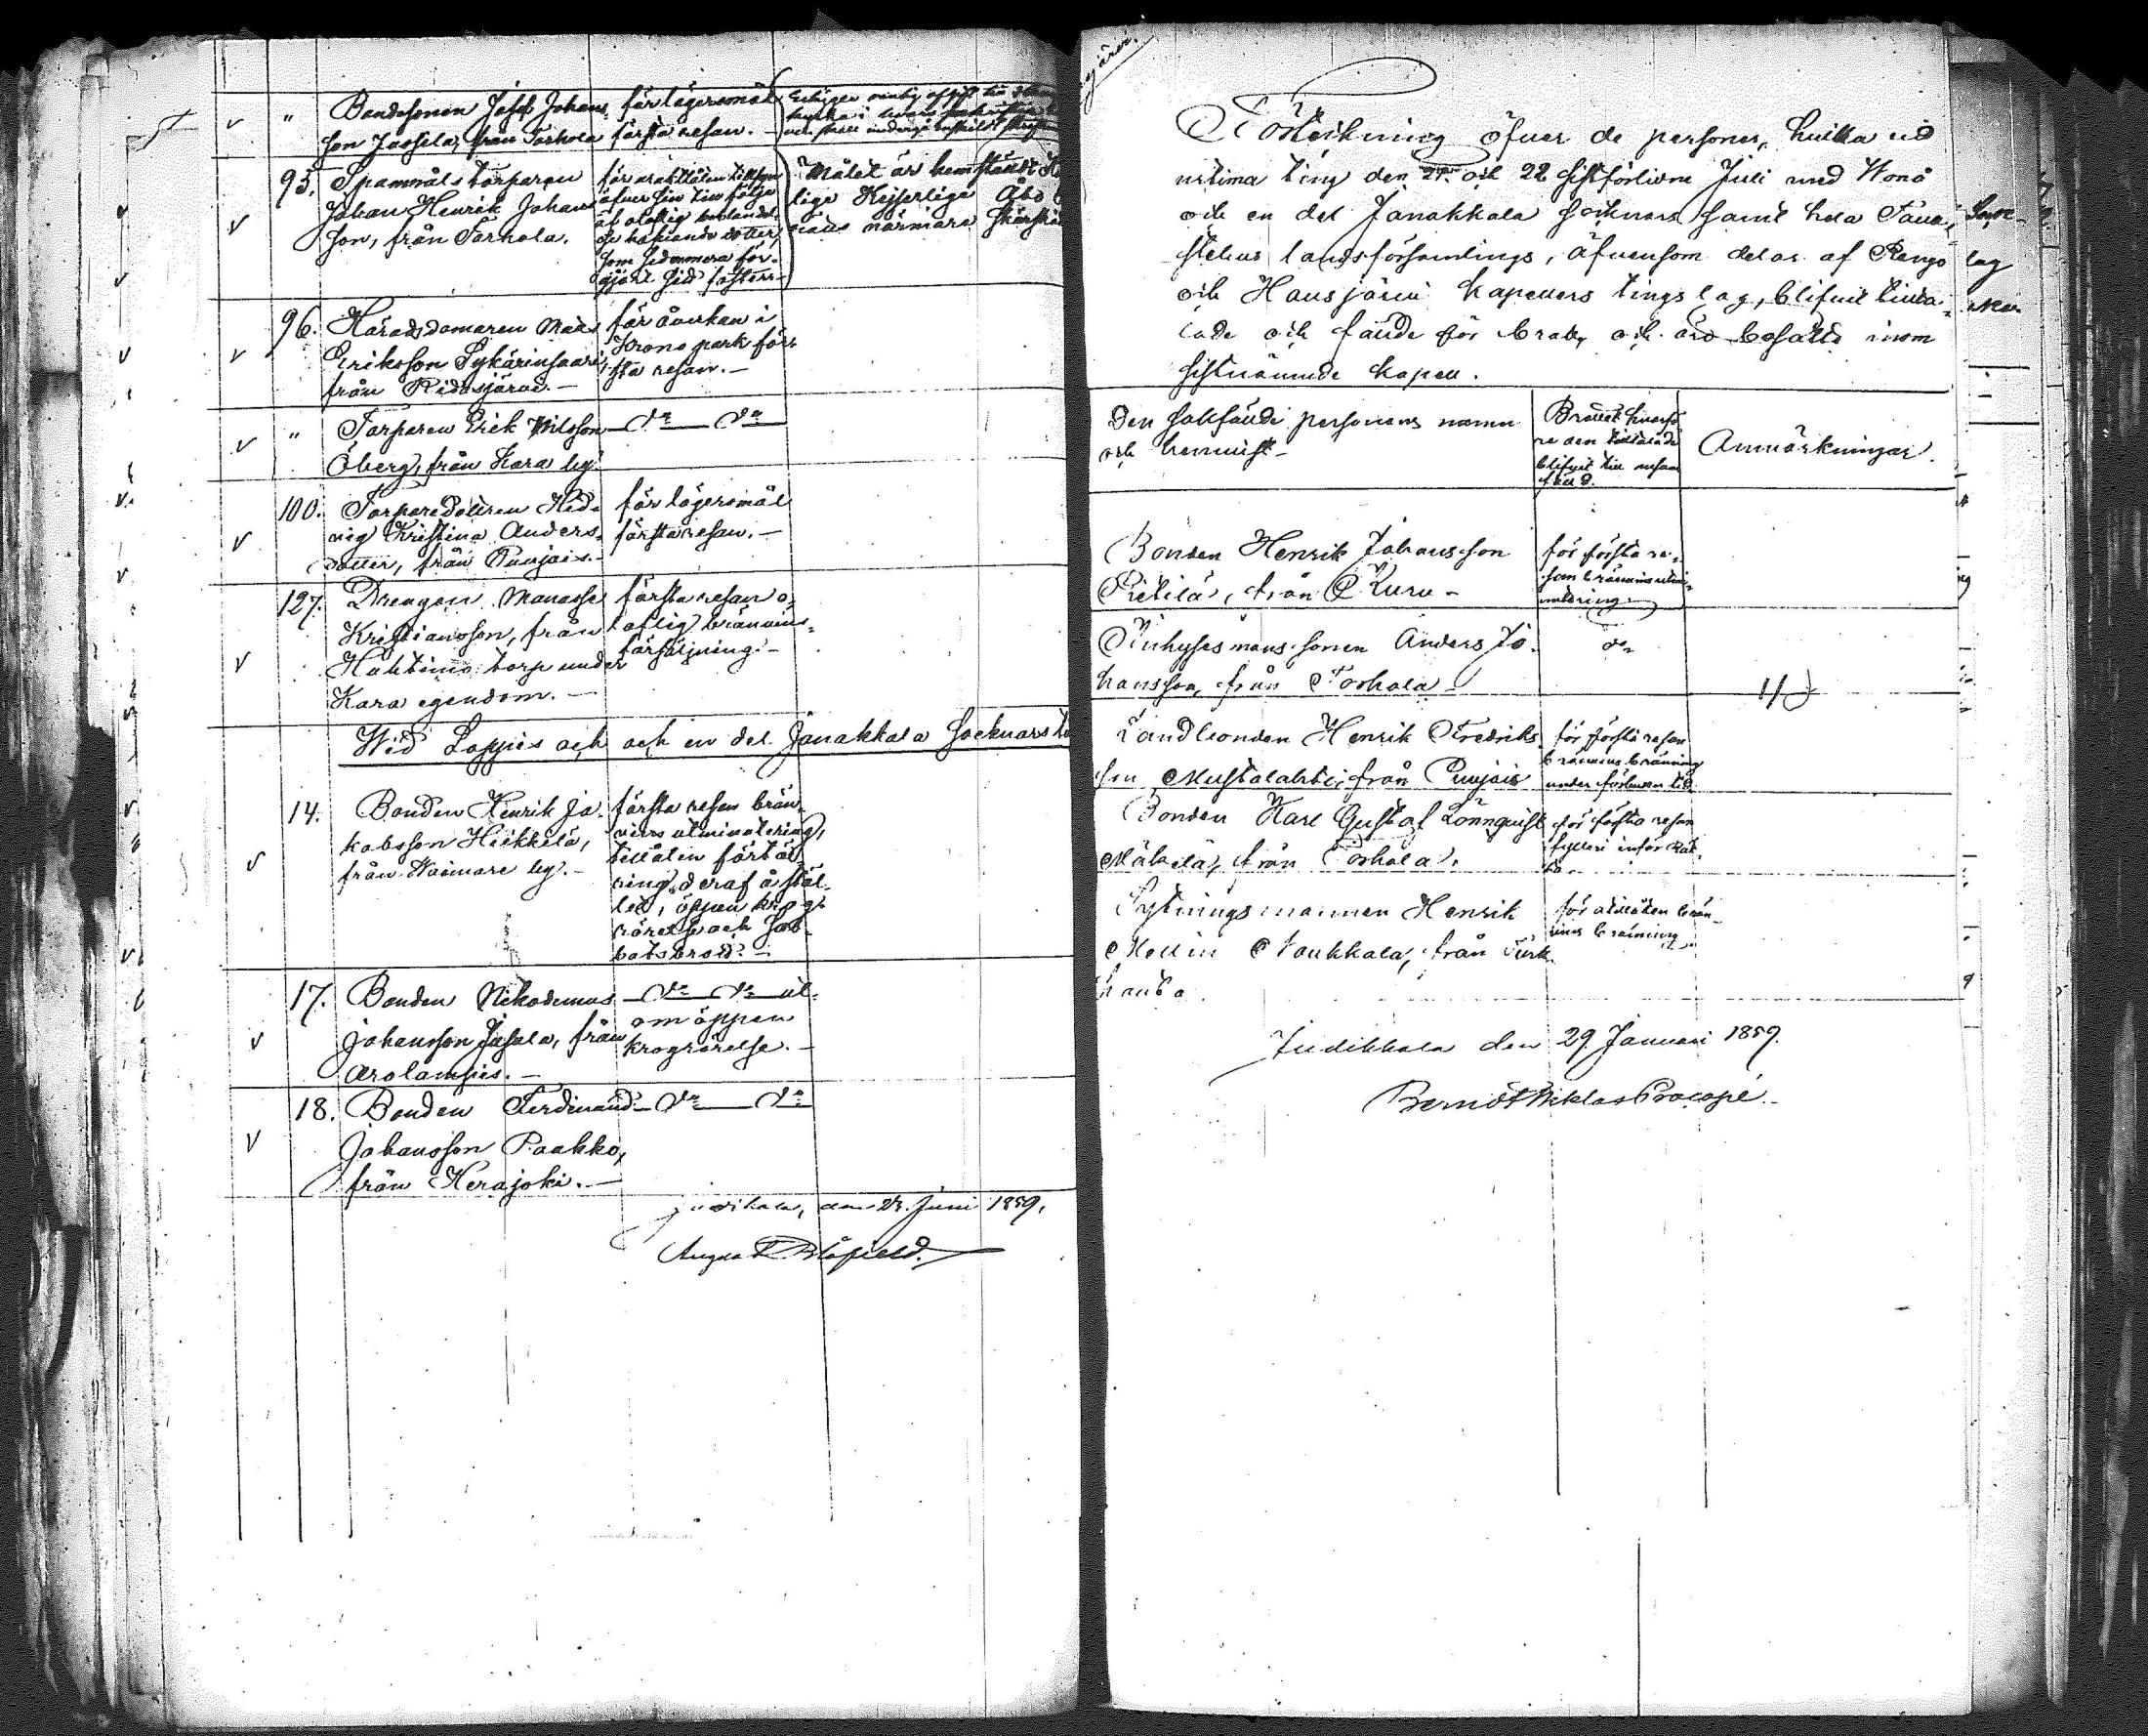 " Bondesonen Josef Johans- för lägersmål
son Jussila, från Torhola första resan. —
95. Spanmålstorparen
Johan Henrik Johans-
son, från Torhola.
för uraktlåten tillsyn
öfver sin till följe
af olaflig beblandel-
se hafvande dotter,
som sedermera för-
gjort sitt foster. —
Målet är hemstäldt
lige Kejserlige Åbo
närmare
96. Häradsdomaren Mats
Eriksson Sykärinsaari,
från Ridasjärvi. —
för åverkan i
Krono park för-
sta resan. —
" Torparen Erik Nilsson — Do — Do
Öberg, från Kara by.
100. Torparedottren Hed-
vig Kristina Anders-
dotter, från Puujais. —
för lägersmål
första resan. —
127. Drengen Manasse
Kristiansson, från
Huhtimo torp under
Kara egendom. —
första resan o-
laflig brännvins-
försäljning. —
Wid Loppis och och en del Janakkala Socknars
14. Bonden Henrik Ja-
kobsson Heikkilä,
från Waimare by. —
första resan brän-
vins utminutering,
tillåten förtä-
ring deraf å stäl-
let, öppen krog-
rörelse och Sab-
batsbrott. —
17. Bonden Nikodemus — Do — Do ut-
Johansson Jusula, från
Arolampis. —
om öppen
krogrörelse. —
18. Bonden Ferdinand — Do — Do
Johansson Paakko,
från Herajoki. —
Judikala, den 28. Juni 1859.
August Blåfield.
Förteckning öfver de personer, hvilka vid
urtima ting den 21. och 22 sistförlidne Juli med Wonå
och en del Janakkala socknars samt hela Tava-
stehus landsförsamlings, äfvensom delar af Rengo
och Hausjärvi kapellers tingslag, blifvit tillta-
lade och fällde för brott, och äro bosatte inom
sistnämnde kapell.
Den sakfällde personens namn
och hemvist —
Brottet hvarfö-
re den tilltalade
blifvit till ansvar
fäld.
Anmärkningar.
Bonden Henrik Johansson
Pietilä, från Kuru —
för första re-
san brännvins utmi-
nutering —
Inhysesmans sonen Anders Jo-
hansson, från Torhola —
do
Landbonden Henrik Fredriks-
son Mustalahti, från Puujais
för första resan
brännvins bränning
under förbuden tid.
Bonden Karl Gustaf Lönnquist
Mäkelä, från Torhola.
för första resan
fylleri inför Rät-
ta.
Sytningsmannen Henrik
Mellin Naukkala, från Turk-
hauta.
för otillåten brän-
vins bränning
Judikkala den 29 Januari 1859.
Berndt Niklas Procopé.